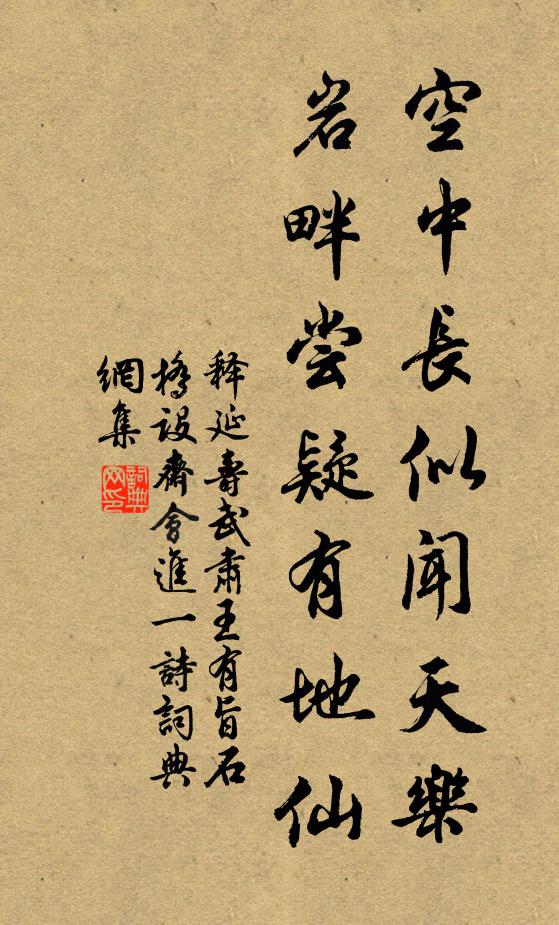 空中長似聞天樂
岩畔尝疑有地仙
释延壽武肅王有旨石
橋設齋會進一詩詞典
網集
詞典
网印